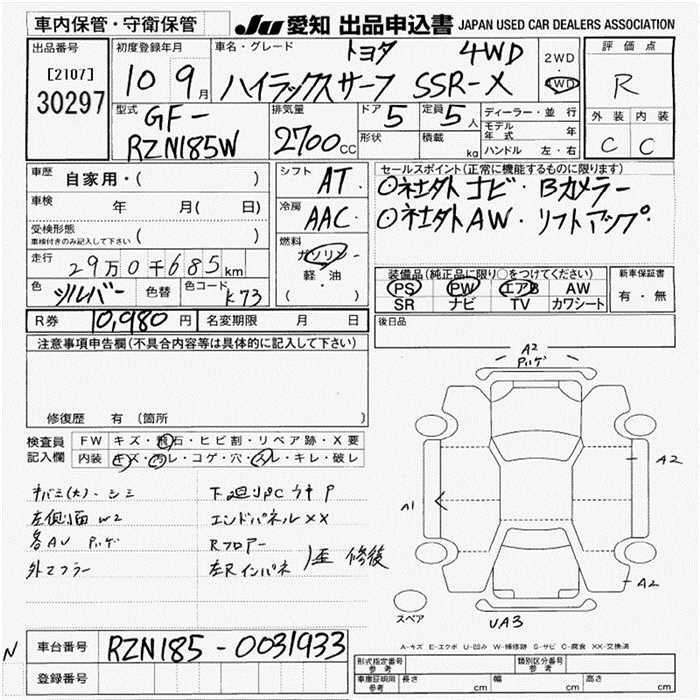 車内保管・守衛保管
JU 愛知 出品申込書 JAPAN USED CAR DEALERS ASSOCIATION
出品番号
[2107]
30297
初度登録年月
10 9月
車名・グレード
トヨタ 4WD
ハイラックスサーフ SSR-X
2WD
・
4WD
評価点
R
外装 内装
C C
型式
GF-
RZN185W
排気量
2700cc
ドア 5
形状
定員 5人
積載 kg
ディーラー・並行
モデル年式 年
ハンドル 左・右
車歴 自家用・( )
車検 年 月( 日)
受検形態
車検付きのみ記入して下さい ( )
走行 29万0千685km
色 シルバー 色替 色コード K73
シフト AT
冷房 AAC
燃料
ガソリン
軽・油
( )
セールスポイント(正常に機能するものに限ります)
○社外ナビ・Bカメラー
○社外AW・リフトアップ
装備品(純正品に限り○をつけてください)
PS PW エアB AW
SR ナビ TV カワシート
新車保証書
有・無
R券 10,980円 名変期限 月 日
後日品
注意事項申告欄(不具合内容等は具体的に記入して下さい)
修復歴 有(箇所 )
検査員記入欄
FW キズ・飛石・ヒビ割・リペア跡・X要
内装 キズ・汚レ・コゲ・穴・スレ・キレ・破レ
左側面W2
外マフラー
エンドパネルXX
Rフロアー
左Rインパネ
歪 修後
A2
A1
A2
A2
UA3
スペア
A-キズ E-エクボ U-凹み W-補修跡 S-サビ C-腐食 XX-交換済
N
車台番号 RZN185-0031933
登録番号
形式指定番号 参考
類別区分番号 参考
車庫証明用 参考 長さ cm 幅 cm 高さ cm